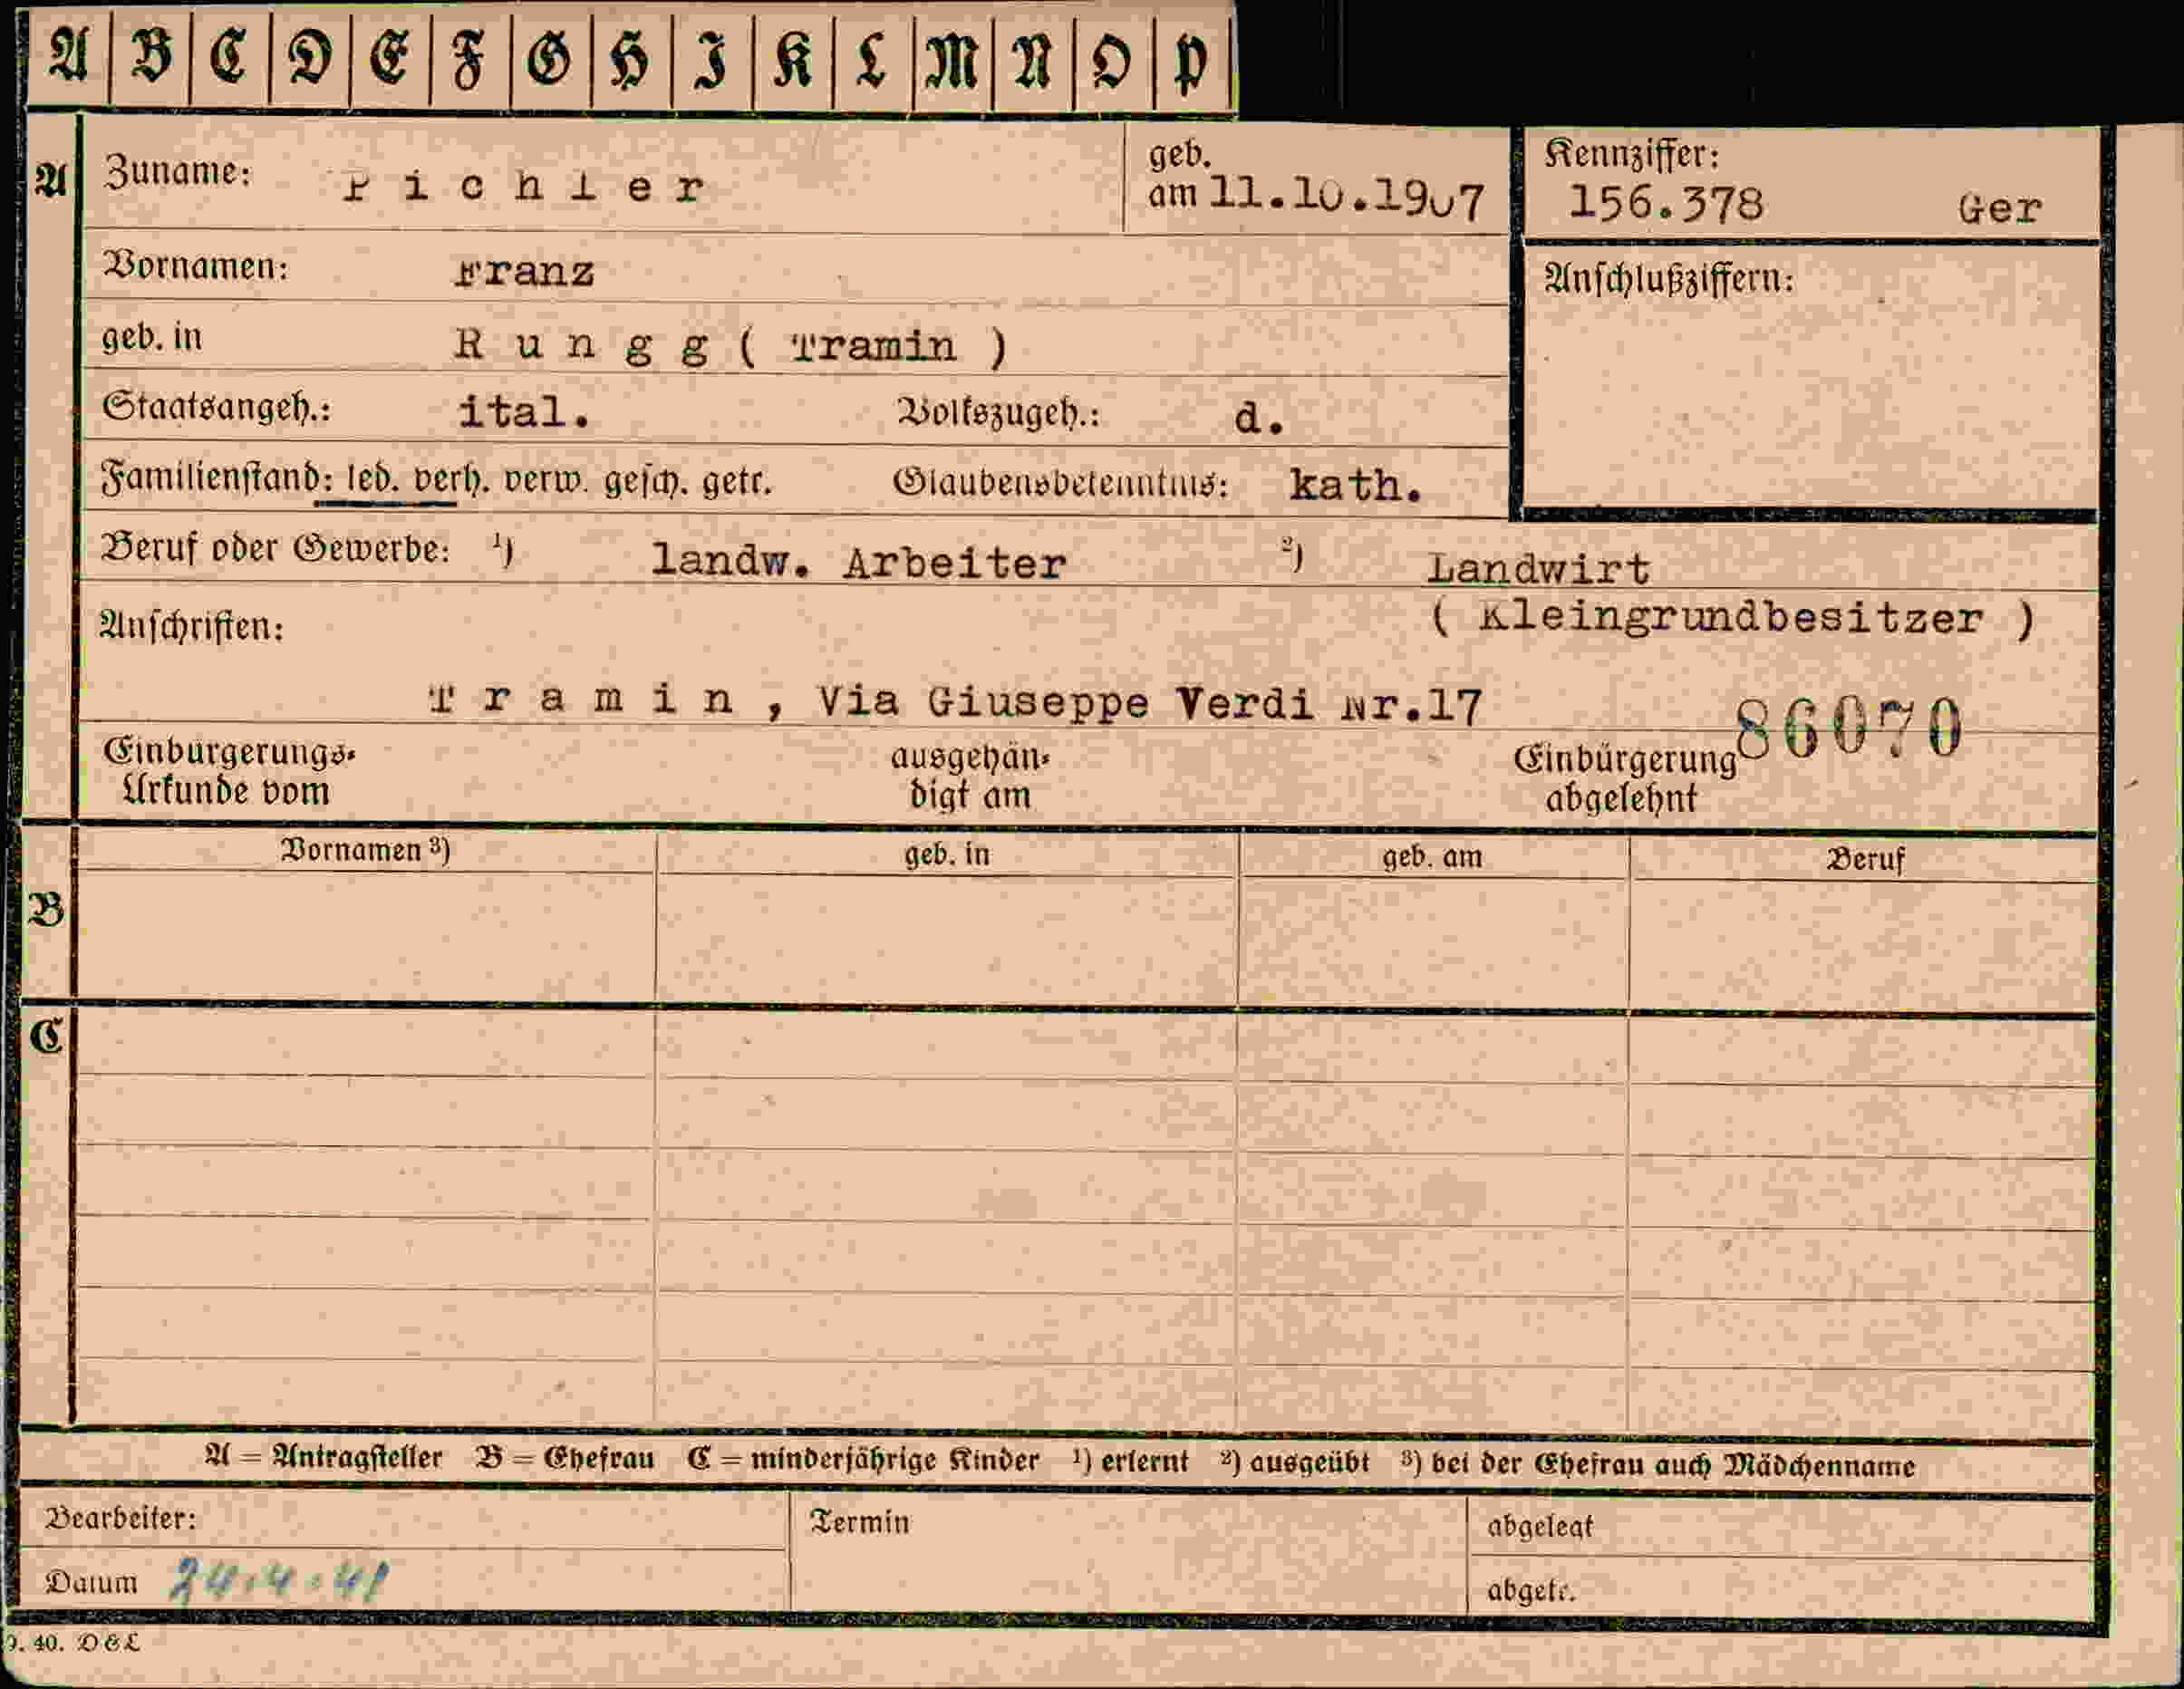 A B C D E F G H I K L M N O P
A Zuname: Pichler geb. am 11.10.1907 Kennziffer: 156.378 Ger
Vornamen: Franz Anschlußziffern:
geb. in Rungg ( Tramin )
Staatsangeh.: ital. Volkszugeh.: d.
Familienstand: led. verh. verw. gesch. getr. Glaubensbekenntnis: kath.
Beruf oder Gewerbe: ¹) landw. Arbeiter ²) Landwirt
( Kleingrundbesitzer )
Anschriften:
Tramin, Via Giuseppe Verdi Nr.17
86070
Einbürgerungs- ausgehän- Einbürgerung
Urkunde vom digt am abgelehnt
Vornamen ³) geb. in geb. am Beruf
B
C
A = Antragsteller B = Ehefrau C = minderjährige Kinder ¹) erlernt ²) ausgeübt ³) bei der Ehefrau auch Mädchenname
Bearbeiter: Termin abgelegt
Datum 24.4.41 abgetr.
9. 40. DEL